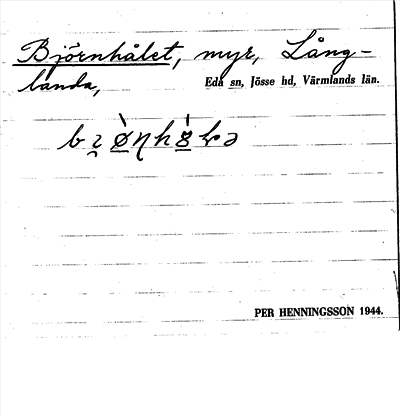 Björnhålet, myr, Lång-
landa, Eda sn, Jösse hd, Värmlands län.
PER HENNINGSSON 1944.